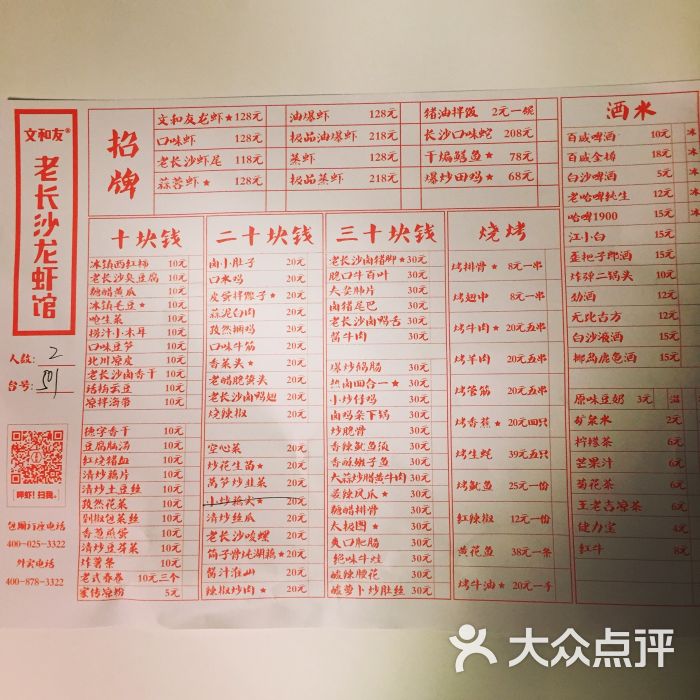 文和友®
老长沙龙虾馆
人数: 2
台号: 501
呷虾! 扫我。
包厢订座电话
400-025-3322
外卖电话
400-878-3322
招牌
文和友龙虾★ 128元
口味虾 128元
老长沙虾尾 118元
蒜蓉虾★ 128元
油爆虾 128元
极品油爆虾 218元
蒸虾 128元
极品蒸虾 218元
猪油拌饭 2元一碗
长沙口味蛇 208元
干煸鳝鱼★ 78元
爆炒田鸡★ 68元
十块钱
冰镇西红柿 10元
老长沙臭豆腐 10元
糖醋黄瓜 10元
冰镇毛豆★ 10元
呛生菜 10元
捞汁小木耳 10元
口味豆笋 10元
北川凉皮 10元
老长沙卤香干 10元
话梅芸豆 10元
凉拌海带 10元
德字香干 10元
豆腐脑汤 10元
红烧猪血 10元
清炒藕片 10元
清炒土豆丝 10元
孜然花菜 10元
剁椒包菜丝 10元
香葱煎蛋 10元
清炒豆芽菜 10元
炸薯条 10元
老式春卷 10元三个
家传凉粉 5元
二十块钱
卤小肚子 20元
口水鸡 20元
皮蛋拌擂子★ 20元
蒜泥白肉 20元
孜然捆鸡 20元
口味牛筋 20元
香菜头★ 20元
老醋脆笋头 20元
老长沙卤鸭翅 20元
烧辣椒 20元
空心菜 20元
炒花生苗★ 20元
莴笋炒韭菜 20元
小炒藕尖★ 20元
清炒丝瓜 20元
老长沙唆螺 20元
筒子骨炖湖藕★ 20元
酱汁淮山 20元
辣椒炒肉★ 20元
三十块钱
老长沙卤猪脚★ 30元
脆口牛百叶 30元
夫妻肺片 30元
卤猪尾巴 30元
老长沙卤鸭舌 30元
酱牛肉 30元
爆炒鸡肠 30元
热卤四合一★ 30元
小炒仔鸡 30元
卤鸡架下锅 30元
炒脆骨 30元
香辣鱿鱼须 30元
香酥嫩子鱼 30元
大蒜炒腊黄牛肉 30元
煮辣风爪★ 30元
糖醋排骨 30元
太极图★ 30元
爽口肥肠 30元
绝味牛蛙 30元
酸辣腰花 30元
酸萝卜炒肚丝 30元
烧烤
烤排骨★ 8元一串
烤翅中★ 8元一串
烤牛肉★ 20元五串
烤羊肉 20元五串
烤管筋 20元五串
烤香蕉★ 20元四只
烤生蚝 39元五只
烤鱿鱼 25元一份
红辣椒 12元一份
黄花鱼 38元一条
烤牛油★ 20元一手
酒水
百威啤酒 10元 冰
百威金樽 18元 冰
白沙啤酒 5元 冰
老哈啤纯生 12元 冰
哈啤1900 15元 冰
江小白 15元
歪把子郎酒 15元
炸弹二锅头 10元
劲酒 12元
无比古方 12元
白沙液酒 12元
椰岛鹿龟酒 15元
原味豆奶 3元 温
矿泉水 2元
柠檬茶 6元
芒果汁 6元
菊花茶 6元
王老吉凉茶 6元
健力宝 6元
红牛 8元
大众点评